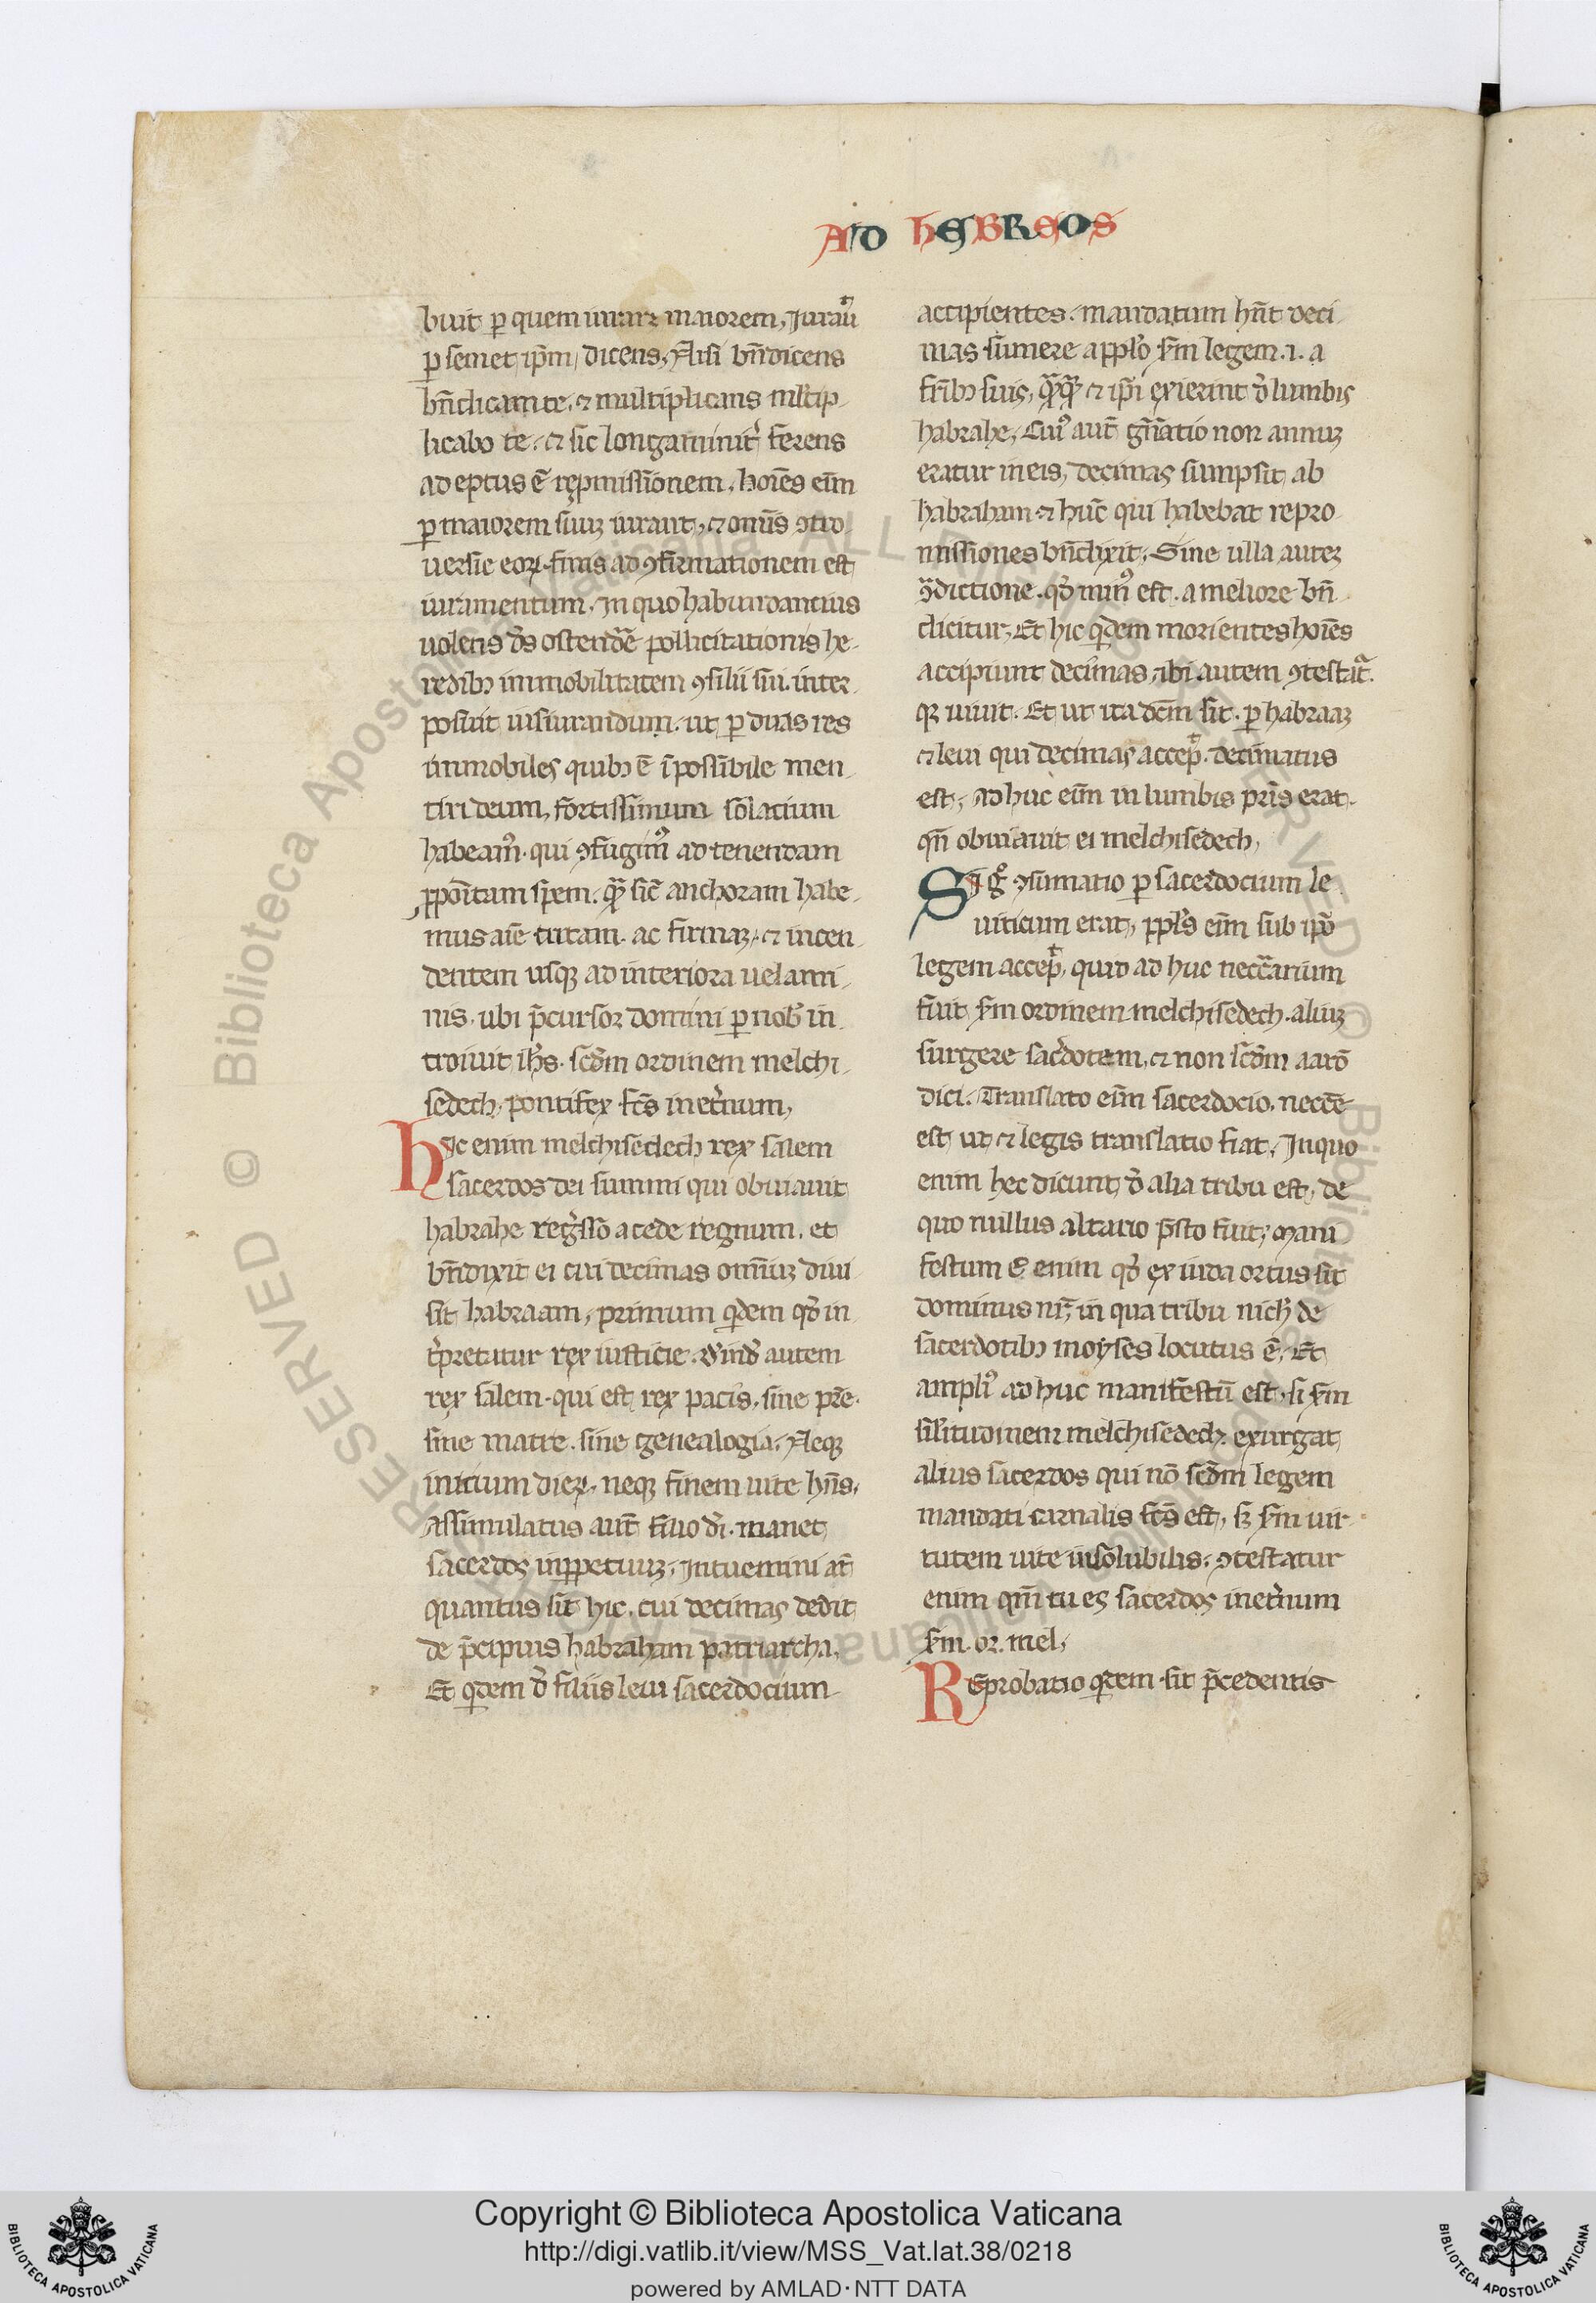 AD HEBREOS
buit ꝑ quem iurarꝫ maiorem, Iurauͭ
ꝑ semet ip̄m, dicens, Nisi bn̄dicens
bn̄dicam te, ⁊ multiplicans ml̄tip-
licabo te. ⁊ sic longaminit̾ ferens
adeptus ē rep̱missionem, hoīes eīm
ꝑ maiorem suuꝫ iurant, ⁊ om̄is ꝯtro-
uersie eoꝝ finis ad ꝯfirmationem est
iuramentum, In quo habundantius
uolens dr̄s ostend̾e pollicitationis he-
redibꝫ inmobilitatem ꝯsilii sui. inter-
posuit iusiurandum. ut ꝑ duas res
inmobiles quibꝫ ē īpossibile men-
tiri deum, fortissimum solacium
habeamꝰ. qui ꝯfugimꝰ ad tenendam
ꝓpoitam spem. quā̱ sic̄ anchoram habe-
mus aīe tutam. ac firmaꝫ. ⁊ incen-
dentem usqꝫ ad interiora uelami-
nis. ubi p̄cursor domini ꝑ nob̾ in-
troiuit ih̄s. scd̄m ordinem melchi-
sedech, pontifex fc̄s in et̾num,
Hic enim melchisedech rex salem
sacerdos dei summi qui obuiauit
habrahe reg̾sso a cede regnum. et
bn̄dixit ei cui decimas omīuꝫ diui-
sit habraam, primum qͥdem qđ in-
t̾pretatur rex iusticie. d̾ind̾ autem
rex salem. qui est rex pacis, sine pr̄e.
sine matre. sine genealogia. Neqꝫ
inicium dieꝝ. neqꝫ finem uite hn̄s.
Assimulatus aut̄ filio dī. manet
sacerdos in ꝑpetuuꝫ. Intuemini at̄
quantus sit hic. cui decimas dedit
de p̄cipuis habraham patriarcha.
Et qͥdem d̾ filiis leui sacerdocium
accipientes. mandatum hn̄t deci-
mas sumere a pplo̾ s̄m legem. i. a
fr̄ibꝫ suis, qͣqͣ ⁊ ip̄i exierint d̾ lumbis
habrahe, Cuiꝰ aut̄ gn̄atio non annuꝫ
eratur in eis, decimas sumpsit ab
habraham ⁊ huc̄ qui habebat repro-
missiones bn̄dixit, Sine ulla auteꝫ
ꝯͣdictione. qđ minꝰ est. a meliore bn̄-
dicitur, Et hic qͥdem morientes hoīes
accipiunt decimas, ibi autem ꝯtestatͣ.
qꝫ uiuit. Et ut ita dc̄m sit. ꝑ habraaꝫ
⁊ leui qui decimas accep̾ͭ. decimatus
est, ad huc eīm in lumbis pr̄is erat.
qn̄ obuiauit ei melchisedech,
Si gͦ ꝯsumatio ꝑ sacerdocium le-
uiticum erat, ppl̾s eīm sub ip̄o
legem accep̾ͭ, quid ad huc necc̄arium
fuit s̄m ordinem melchisedech. aliuꝫ
surgere sac̾dotem, ⁊ non scd̄m aarō
dici. Translato eīm sacerdocio. necc̄e
est ut ⁊ legis translatio fiat. In quo
enim hec dicunt̾ d̾ alia tribu est, de
quo nullus altario p̄sto fuit, Mani-
festum ē enim qđ ex iuda ortus sit
dominus nr̄, in qua tribu nich̾ de
sacerdotibꝫ moyses locutus ē. Et
ampliꝰ ad huc manifestū est. si s̄m
sil̾itudinem melchisedech exurgat
alius sacerdos qui nō scd̄m legem
mandati carnalis fc̄s est, sꝫ s̄m uir-
tutem uite insolubilis. ꝯtestatur
enim qm̄ tu es sacerdos in et̾num
s̄m. or. mel,
Reprobatio qͥdem fit p̄cedentis
Copyright © Biblioteca Apostolica Vaticana
http://digi.vatlib.it/view/MSS_Vat.lat.38/0218
powered by AMLAD·NTT DATA
BIBLIOTECA APOSTOLICA VATICANA
BIBLIOTECA APOSTOLICA VATICANA